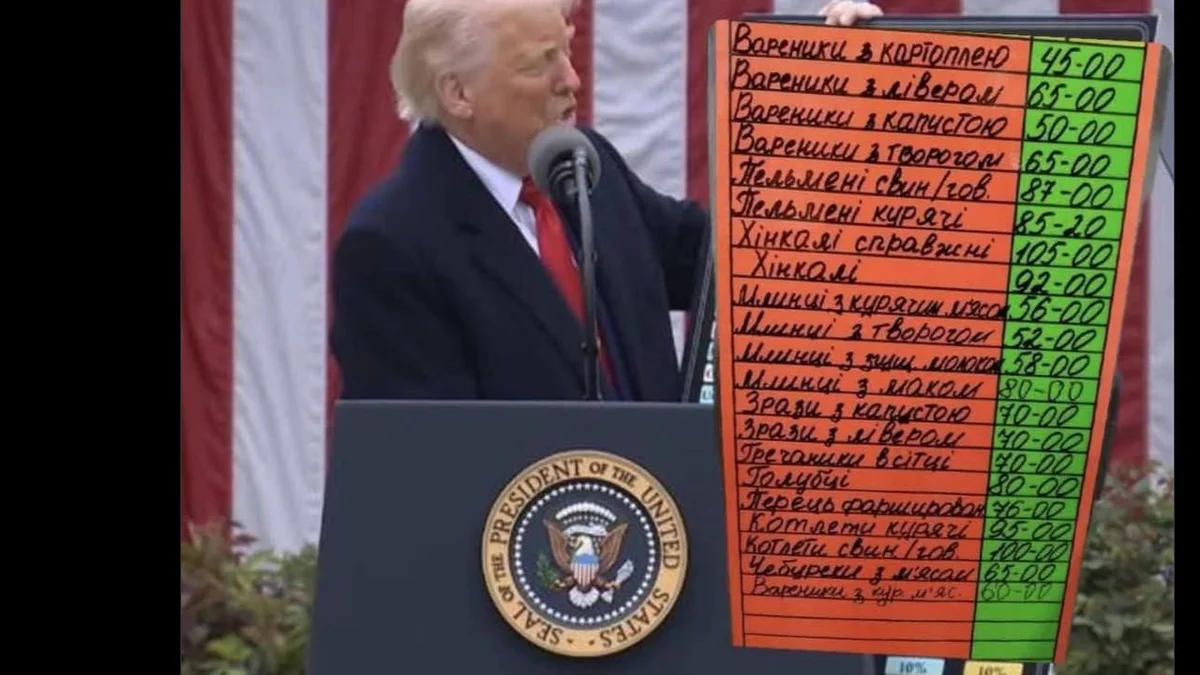 Вареники з картоплею 45-00
Вареники з лівером 65-00
Вареники з капустою 50-00
Вареники з творогом 65-00
Пельмені свин/гов. 87-00
Пельмені курячі 85-20
Хінкалі справжні 105-00
Хінкалі 92-00
Млинці з курячим м'ясом 56-00
Млинці з творогом 52-00
Млинці з 58-00
Млинці з маком 80-00
Зрази з капустою 70-00
Зрази з лівером 70-00
Гречаники в сітці 70-00
Голубці 80-00
Перець фарширован 76-00
Котлети курячі 95-00
Котлети свин/гов. 100-00
Чебуреки з м'ясом 65-00
Вареники з кур. м'яс. 60-00
10% 10%
SEAL OF THE PRESIDENT OF THE UNITED STATES